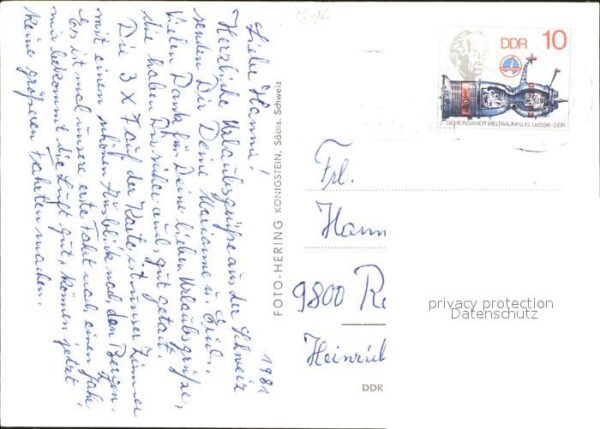 1981
Liebe Hanni!
Herzliche Urlaubsgrüße aus der Schweiz
senden Dir Deine Marianne u.
Vielen Dank für Deine lieben Urlaubsgrüße,
die haben Dir sicher auch gut getan.
Die 3 X 7 auf der Karte ist unser Zimmer
mit einen schönen Ausblick nach den Bergen.
Es ist mal unsere erste Fahrt nach einen Jahr,
mir bekommt die Luft gut, können jetzt
keine größeren Fahrten machen.
FOTO-HERING KÖNIGSTEIN, Sächs. Schweiz
DDR 10
GEMEINSAMER WELTRAUMFLUG UdSSR-DDR
Frl.
Hann
9800 Re
Heinrich
DDR
privacy protection
Datenschutz